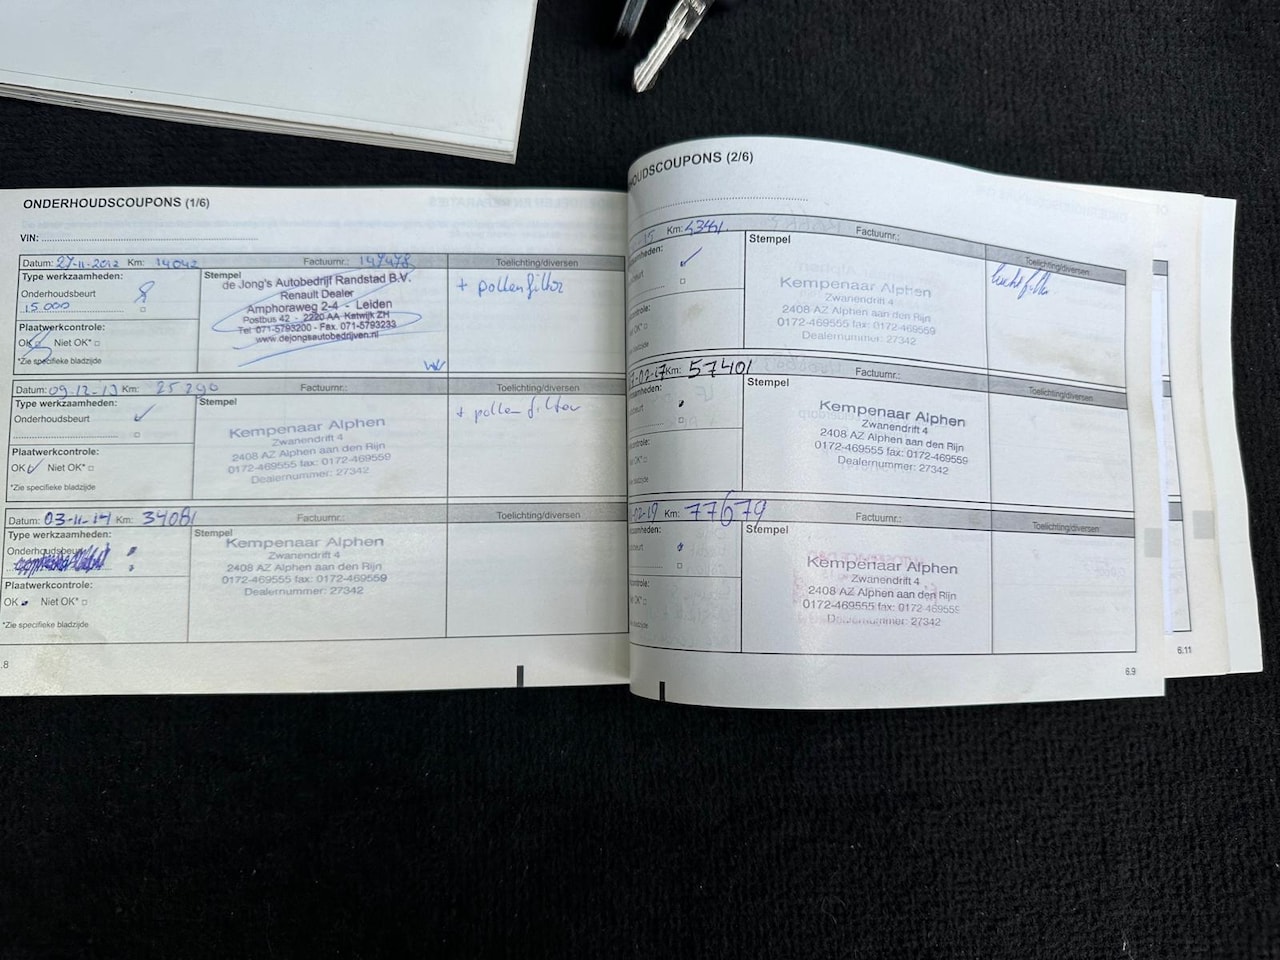 ONDERHOUDSCOUPONS (1/6)
VIN:
Datum: 27-11-2012 Km: 14042 Factuurnr.: 147478 Toelichting/diversen
Type werkzaamheden:
Onderhoudsbeurt
15.000
Plaatwerkcontrole:
OK Niet OK*
*Zie specifieke bladzijde
Stempel
de Jong's Autobedrijf Randstad B.V.
Renault Dealer
Amphoraweg 2-4 - Leiden
Postbus 42 - 2220 AA Katwijk ZH
Tel. 071-5793200 - Fax. 071-5793233
www.dejongsautobedrijven.nl
+ pollenfilter
Datum: 09-12-13 Km: 25290 Factuurnr.: Toelichting/diversen
Type werkzaamheden:
Onderhoudsbeurt
Plaatwerkcontrole:
OK Niet OK*
*Zie specifieke bladzijde
Stempel
Kempenaar Alphen
Zwanendrift 4
2408 AZ Alphen aan den Rijn
0172-469555 fax: 0172-469559
Dealernummer: 27342
+ pollenfilter
Datum: 03-11-14 Km: 34081 Factuurnr.: Toelichting/diversen
Type werkzaamheden:
Onderhoudsbeurt
Plaatwerkcontrole:
OK Niet OK*
*Zie specifieke bladzijde
Stempel
Kempenaar Alphen
Zwanendrift 4
2408 AZ Alphen aan den Rijn
0172-469555 fax: 0172-469559
Dealernummer: 27342
.8
HOUDSCOUPONS (2/6)
-15 Km: 43461 Factuurnr.: Toelichting/diversen
Stempel
Kempenaar Alphen
Zwanendrift 4
2408 AZ Alphen aan den Rijn
0172-469555 fax: 0172-469559
Dealernummer: 27342
luchtfilter
-02-17 Km: 57401 Factuurnr.: Toelichting/diversen
Stempel
Kempenaar Alphen
Zwanendrift 4
2408 AZ Alphen aan den Rijn
0172-469555 fax: 0172-469559
Dealernummer: 27342
-02-19 Km: 77679 Factuurnr.: Toelichting/diversen
Stempel
Kempenaar Alphen
Zwanendrift 4
2408 AZ Alphen aan den Rijn
0172-469555 fax: 0172-469559
Dealernummer: 27342
6.9
6.11